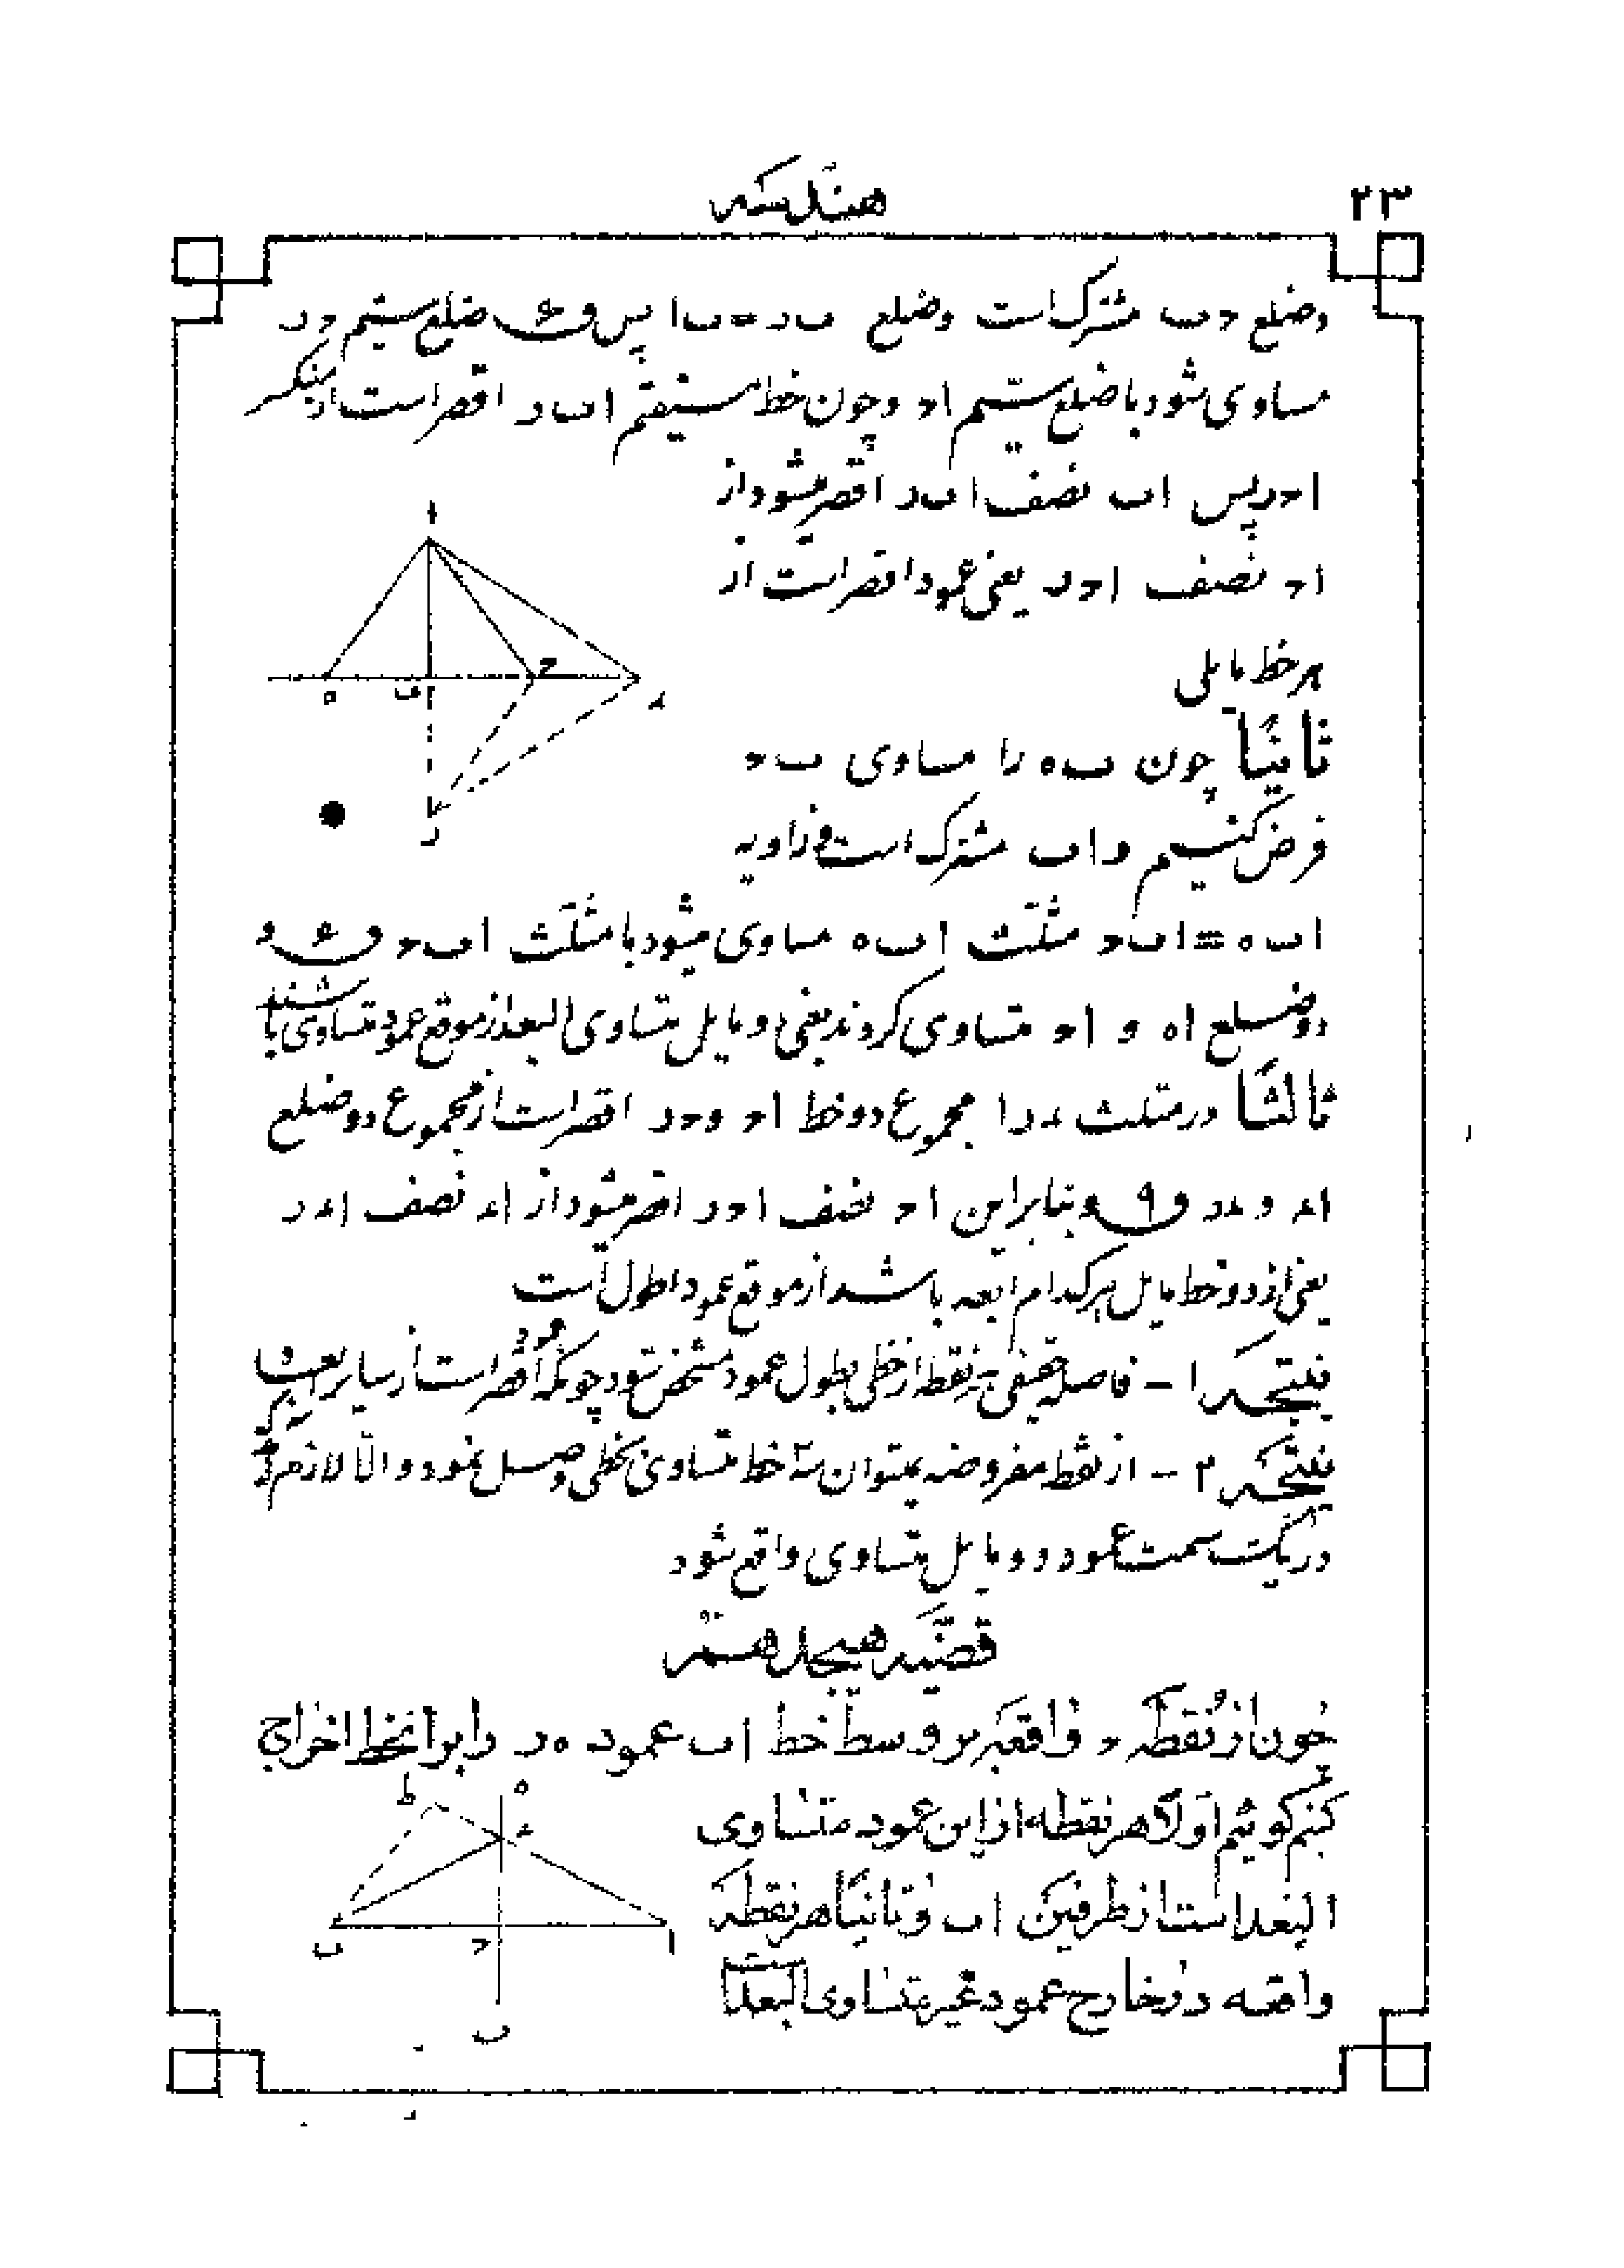 هندسه
۲۳
وضلع حب مشترک است وضلع ب‌د = ب‌ا پس ق ع ضلع سیتم ح‌د
مساوی شود با ضلع سیتم ا‌ح وچون خط مستقیم ا‌ب‌د اقصر است از منکسر
ا‌ح‌د پس ا‌ب نصف ا‌ب‌د اقصر میشود از
ا‌ح نصف ا‌ح‌د یعنی عمود اقصر است از
هر خط مایلی
ثانیاً چون ب‌ه را مساوی ب‌ح
فرض کنیم و ا‌ب مشترک است و زاویه
ا‌ب‌ه = ا‌ب‌ح مثلّث ا‌ب‌ه مساوی میشود با مثلّث ا‌ب‌ح ق ع و
دو ضلع ا‌ه و ا‌ح متساوی کردند یعنی دو مایل متساوی البعد از موقع عمود متساوی باشند
ثالثاً در مثلث ء‌د‌ا مجموع دو خط ا‌ح و ح‌د اقصر است از مجموع دو ضلع
ا‌ء و ء‌د ق ۹ و بنابراین ا‌ح نصف ا‌ح‌د اقصر میشود از ا‌ء نصف ا‌ء‌د
یعنی از دو خط مایل هر کدام ابعد باشد از موقع عمود اطول است
نتیجه ۱ - فاصله حقیقی هر نقطه از خطی بطول عمود مشخص شود چونکه عمود اقصر است از سایر
نتیجه ۲ - از نقطه مفروضه نمیتوان سه خط متساوی بخطی وصل نمود والّا لازم
در یکت سمت عمود دو مایل متساوی واقع شود
قضیّه هیجدهم
چون از نقطه ح واقعه بر وسط خط ا‌ب عمود ه‌د را بر آنخط اخراج
کنیم کوئیم اولاً هر نقطه از این عمود متساوی
البعد است از طرفین ا‌ب و ثانیاً هر نقطه
واقعه در خارج عمود غیر متساوی البعد است
ا
ه ب ح ء
د
ط ه
ء
ب ح ا
ب